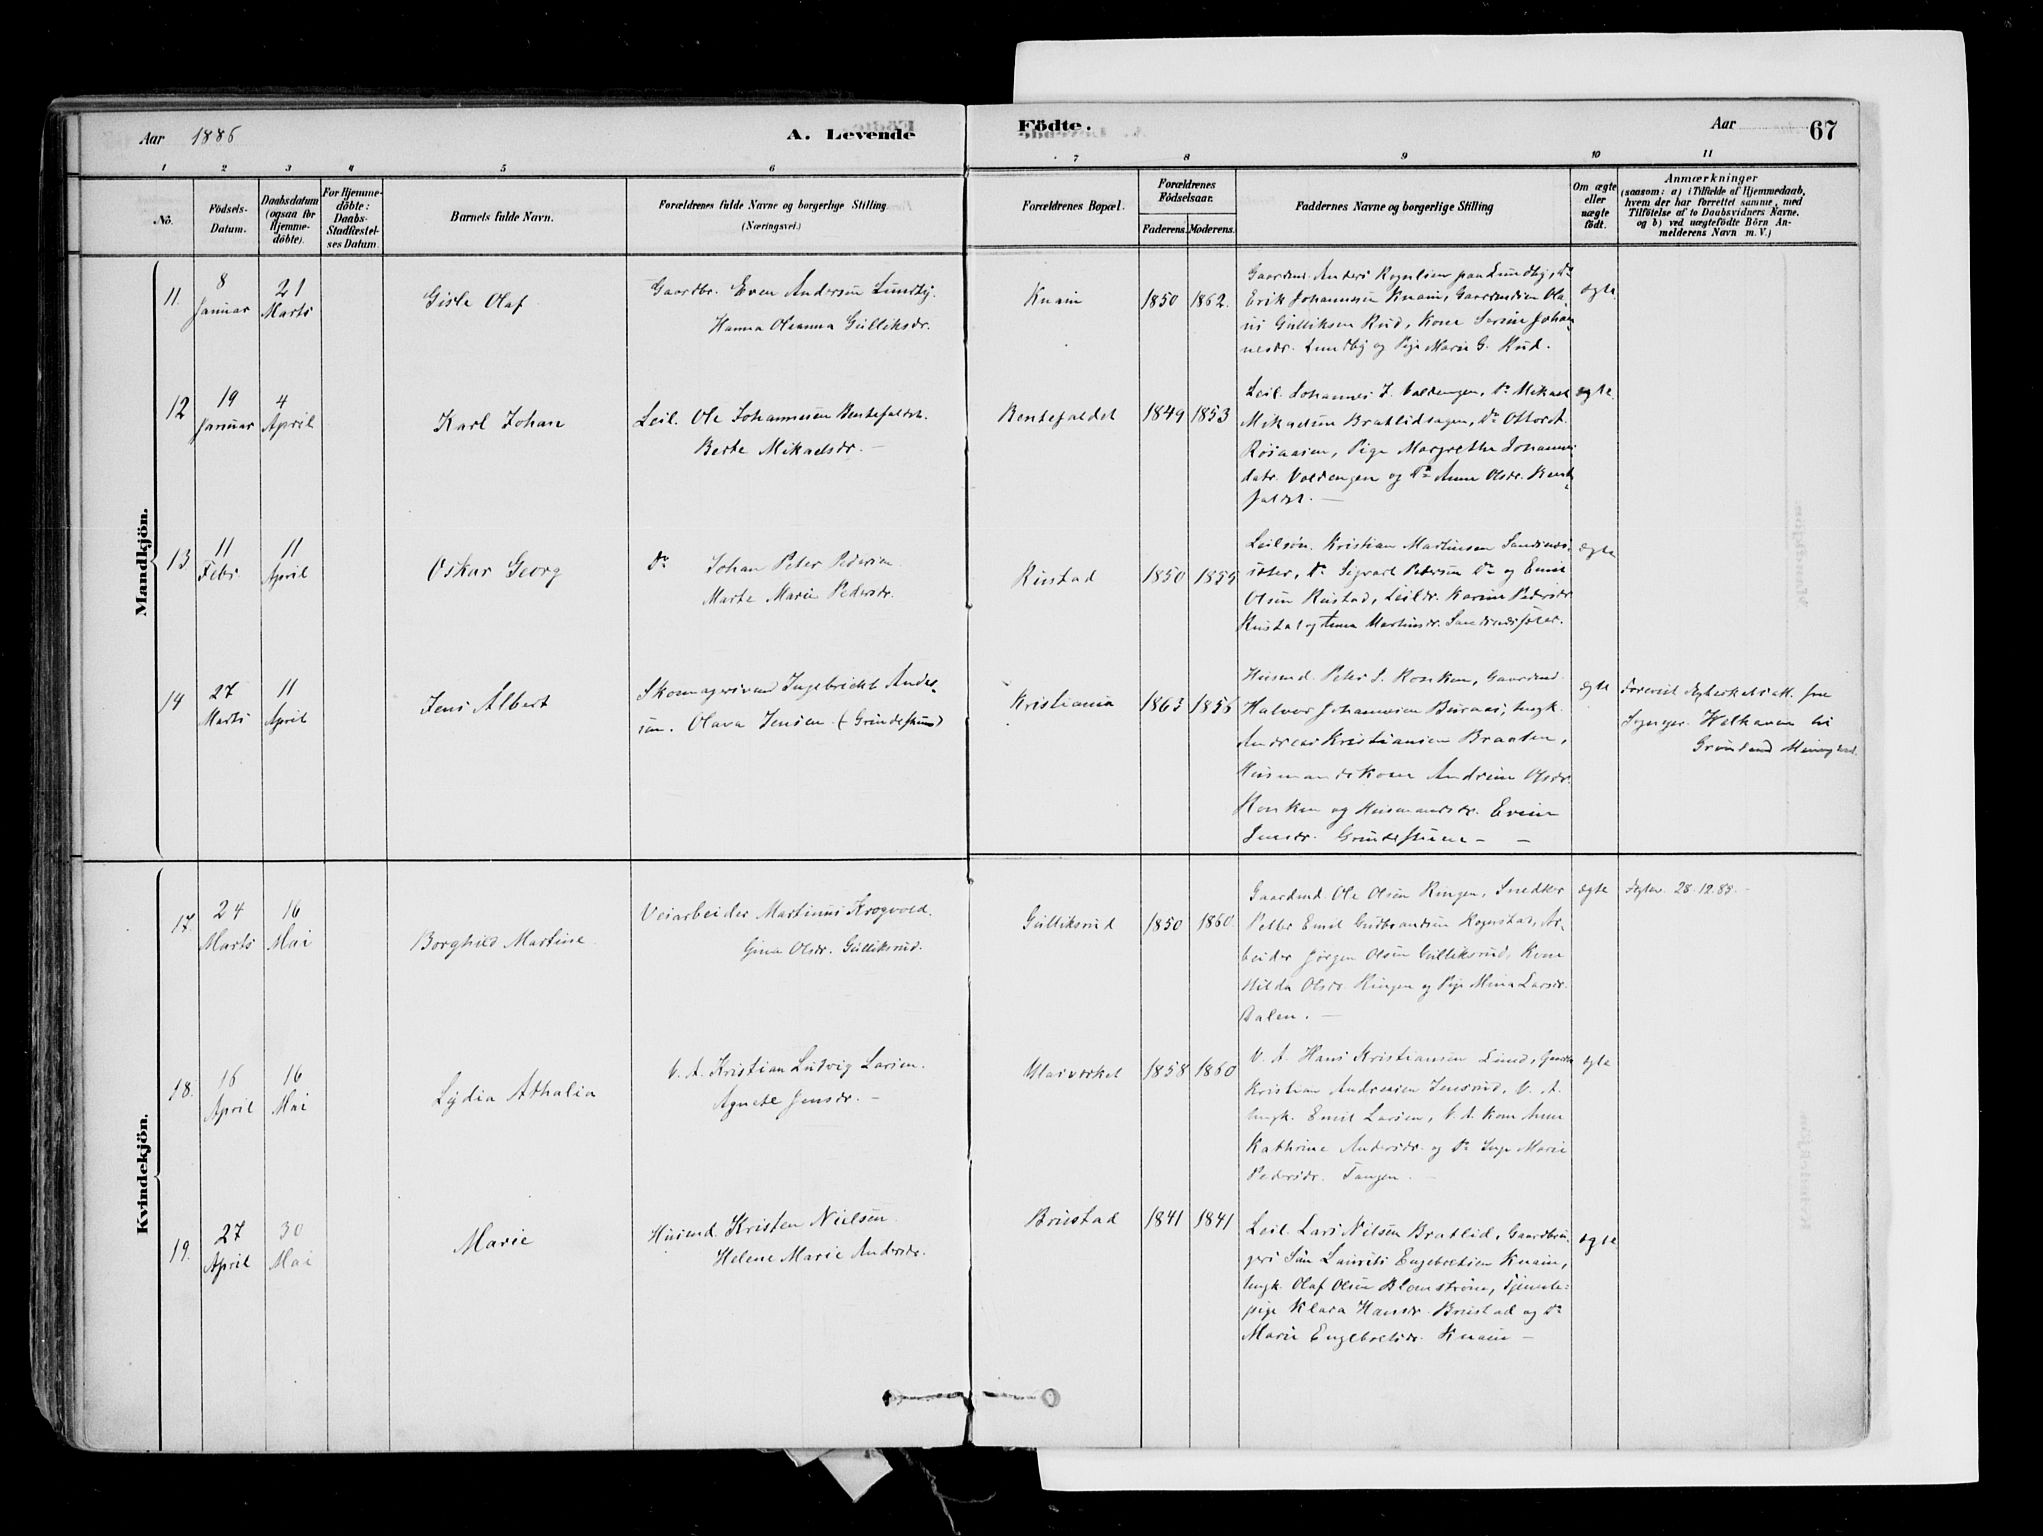 Aar 1886 A. Levende Födte. Aar 67
1 2 3 4 5 6 7 8 9 10 11
No. Födsels-Datum. Daabsdatum (ogsaa for Hjemme-döbte). For Hjemme-döbte: Daabs-Stadfæstel-ses Datum. Barnets fulde Navn. Forældrenes fulde Navne og borgerlige Stilling (Næringsvei.) Forældrenes Bopæl. Forældrenes Födselsaar. Faderens. Moderens. Faddernes Navne og borgerlige Stilling Om ægte eller uægte födt. Anmærkninger (saasom: a) i Tilfælde af Hjemmedaab, hvem der har forrettet samme, med Tilföielse af to Daabsvidners Navne, og b) ved uægtefödte Börn An-melderens Navn m. V.)
Mandkjön.
11. 8 Januar 21 Marts
Gisle Olaf
Gaardbr. Even Andersen Lundby.
Hanna Oleanna Gulliksdr.
Knain 1850 1862.
Gaardmd. Anders Rognlien paa Lundby, Do
Erik Johannesen Knain, Gaardmdien Ola-
us Gulliksen Rud, Kone Sørine Johan-
nesdr. Lundby og Pige Marie G. Rud.
ægte
12 19 Januar 4 April
Karl Johan
Leil. Ole Johannesen Bentefaldet.
Berte Mikaelsdr. —
Bentefaldet 1849 1853
Leil. Johannes J. Valdengen, Do Mikael
Mikaelsen Bratlidhagen, Do Ottor A.
Røisaasen, Pige Margrethe Johannis
datr. Valdengen og Do Anne Olsdr. Bente
faldet. —
ægte.
13 11 Febr. 11 April
Oskar Georg
Do Johan Peter Pedersen
Marte Marie Pedersdr.
Rustad 1850 1855
Leilsøn. Kristian Martinsen Sandnes
sæter, Do Sigvart Petersen Do og Emil
Olsen Rustad, Leildr. Karine Pedersdr
Rustad og Anna Martinsdr. Sandnessæter.
ægte
14 27 Marts 11 April
Jens Albert
Skomagersvend Ingebrickt Ander-
sen. Olava Jensen (Grindestuen)
Kristiania 1863 1856
Husmd. Peter S. Honken, Gaardmd.
Halvor Johannesen Buraas, Ungk.
Andreas Kristiansen Braaten,
Husmandskone Andrine Olsdr.
Honken og Husmandsdr. Evine
Jensdr. Grindestuen — —
ægte
Forevist Ægteskabsatt. fra
Sognepr. Welhaven til
Grønland Menighed.
Kvindekjön.
17. 24 Marts 16 Mai
Borghild Martine
Veiarbeider Martinus Krogvold.
Gina Olsdr. Gulliksrud.
Gulliksrud 1850 1860
Gaardmd. Ole Olsen Ringen, Snedker
Petter Emil Gudbrandsen Rognstad, Ar-
beider Jørgen Olsen Gulliksrud, Kone
Hilda Olsdr. Ringen og Pige Mina Larsdr.
Dalen. —
ægte
Ægtev. 28.12.85. —
18. 16 April 16 Mai
Lydia Athalia
V. A. Kristian Ludvig Larsen.
Agnete Jensdr. —
Glasværket 1858 1860
V. A. Hans Kristiansen Lund, Gaardm
Kristian Andreasen Jensrud, V. A.
Ungk. Emil Larsen, V. A. Kone Anne
Kathrine Andersdr. og Do Inge Marie
Pedersdr. Tangen. —
ægte
19. 27 April 30 Mai
Marie
Husmd. Kristen Nielsen.
Helene Marie Andersdr.
Brustad 1841 1841
Leil. Lars Nilsen Bratlid, Gaardbru-
gers Søn Laurits Engebretsen Knain,
Ungk. Olaf Olsen Blomstrøm, Tjeneste-
pige Klara Hansdr. Brustad og Do
Marie Engebretsdr. Knain —
ægte